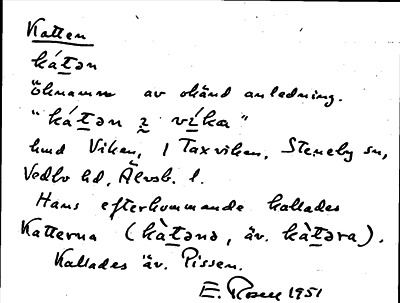 Katten
ká̱tən
Öknamn av okänd anledning.
"ká̱tən ɪ̰ víka"
hmd Viken, / Taxviken, Steneby sn,
Vedbo hd, Älvsb. l.
Hans efterkommande kallades
Katterna (kàtənə, äv. kàtəra).
Kallades äv. Pissen.
E. Rosell 1951